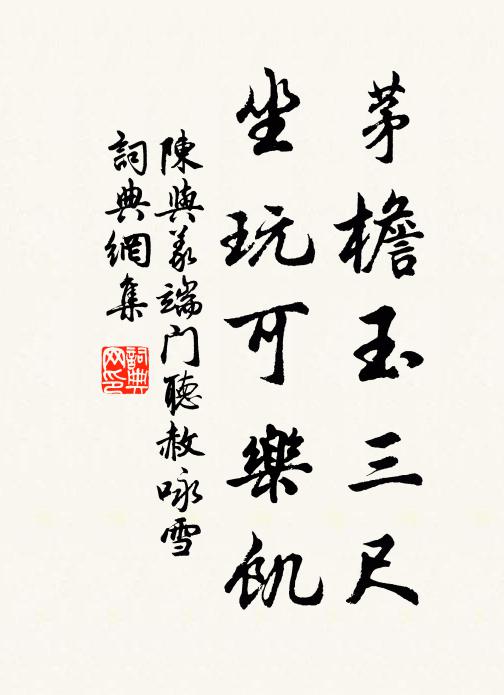 茅檐玉三尺
坐玩可樂飢
陳與義端门聽赦咏雪
詞典網集
詞典网印